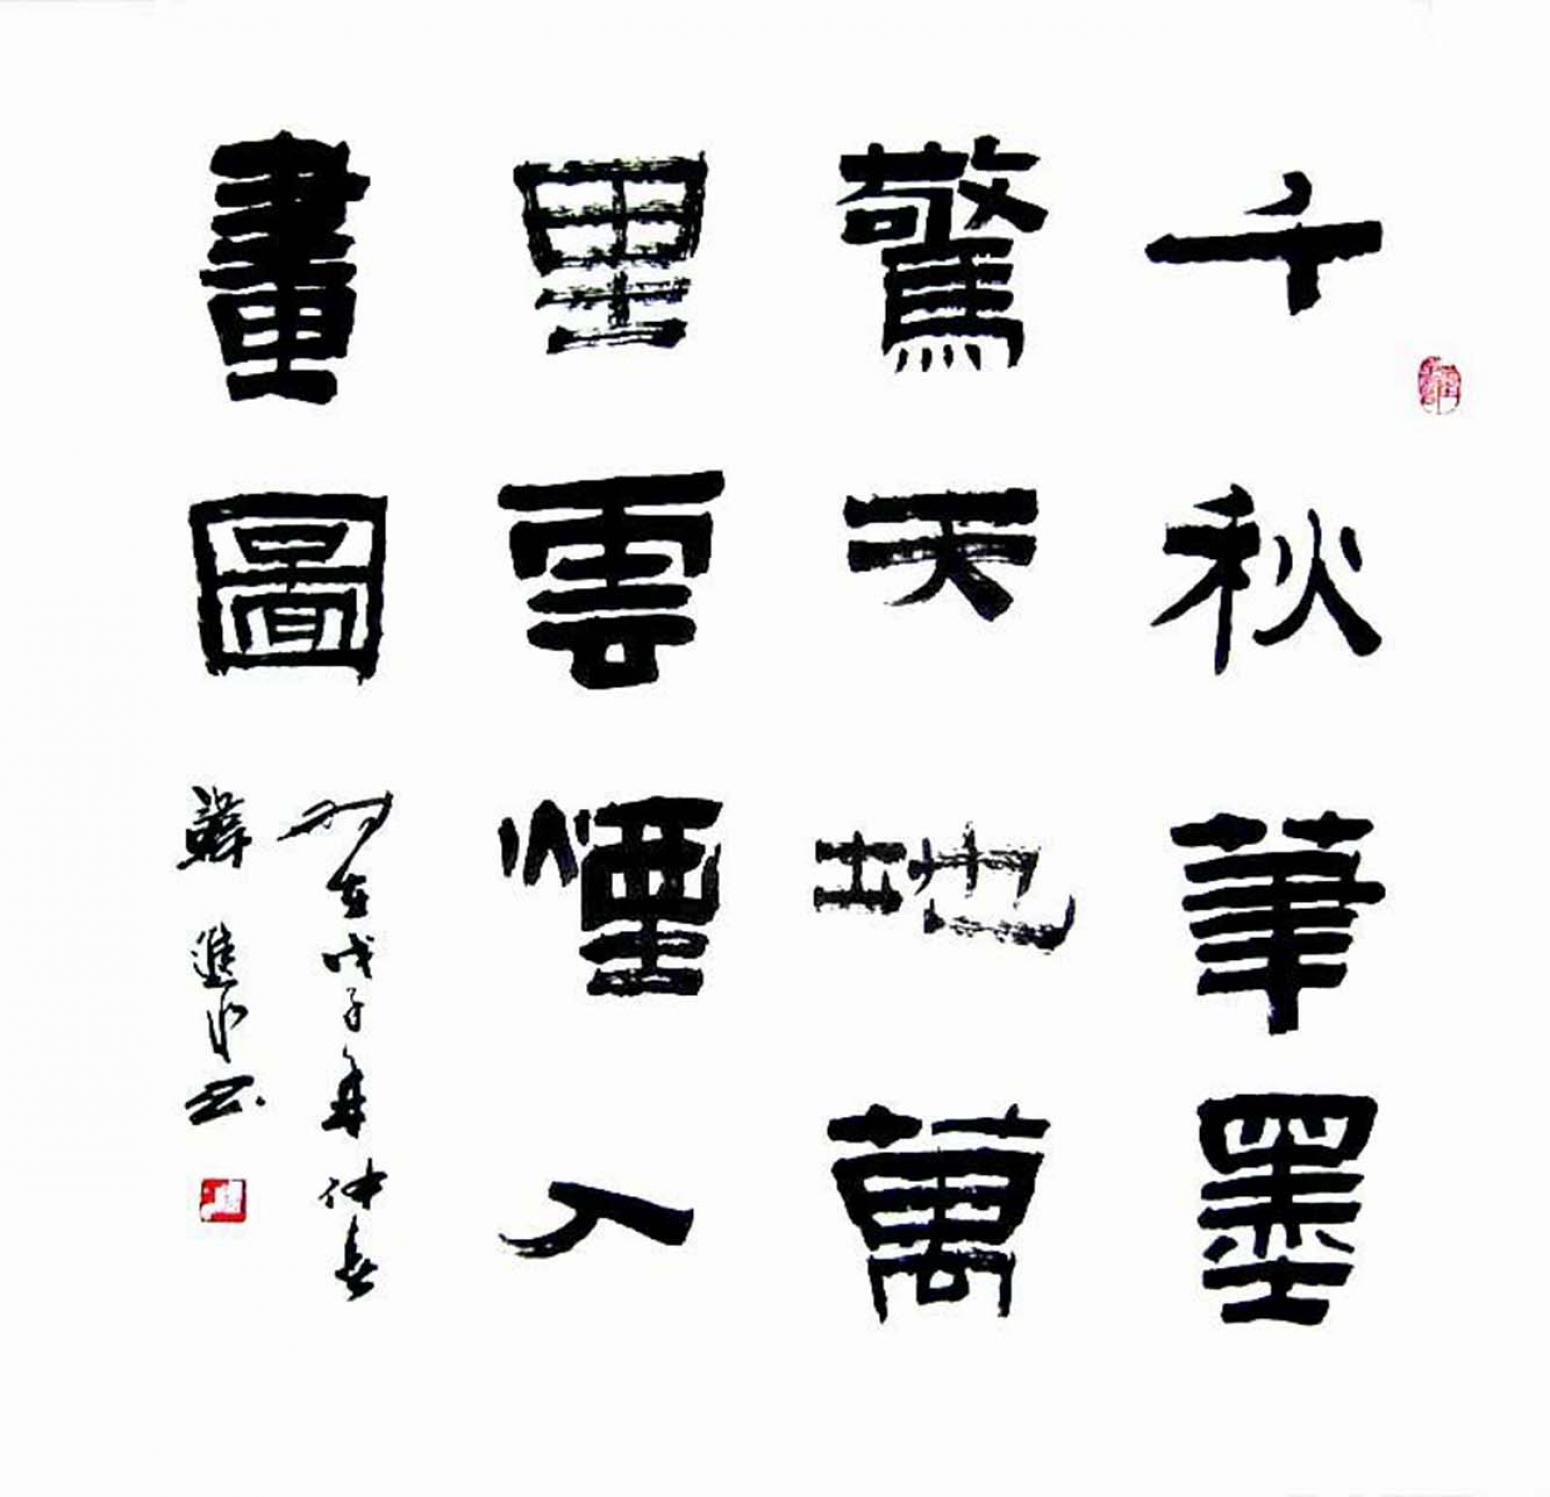 千秋筆墨
驚天地萬
里雲煙入
畫圖
歲在戊子年仲春
韓進水书